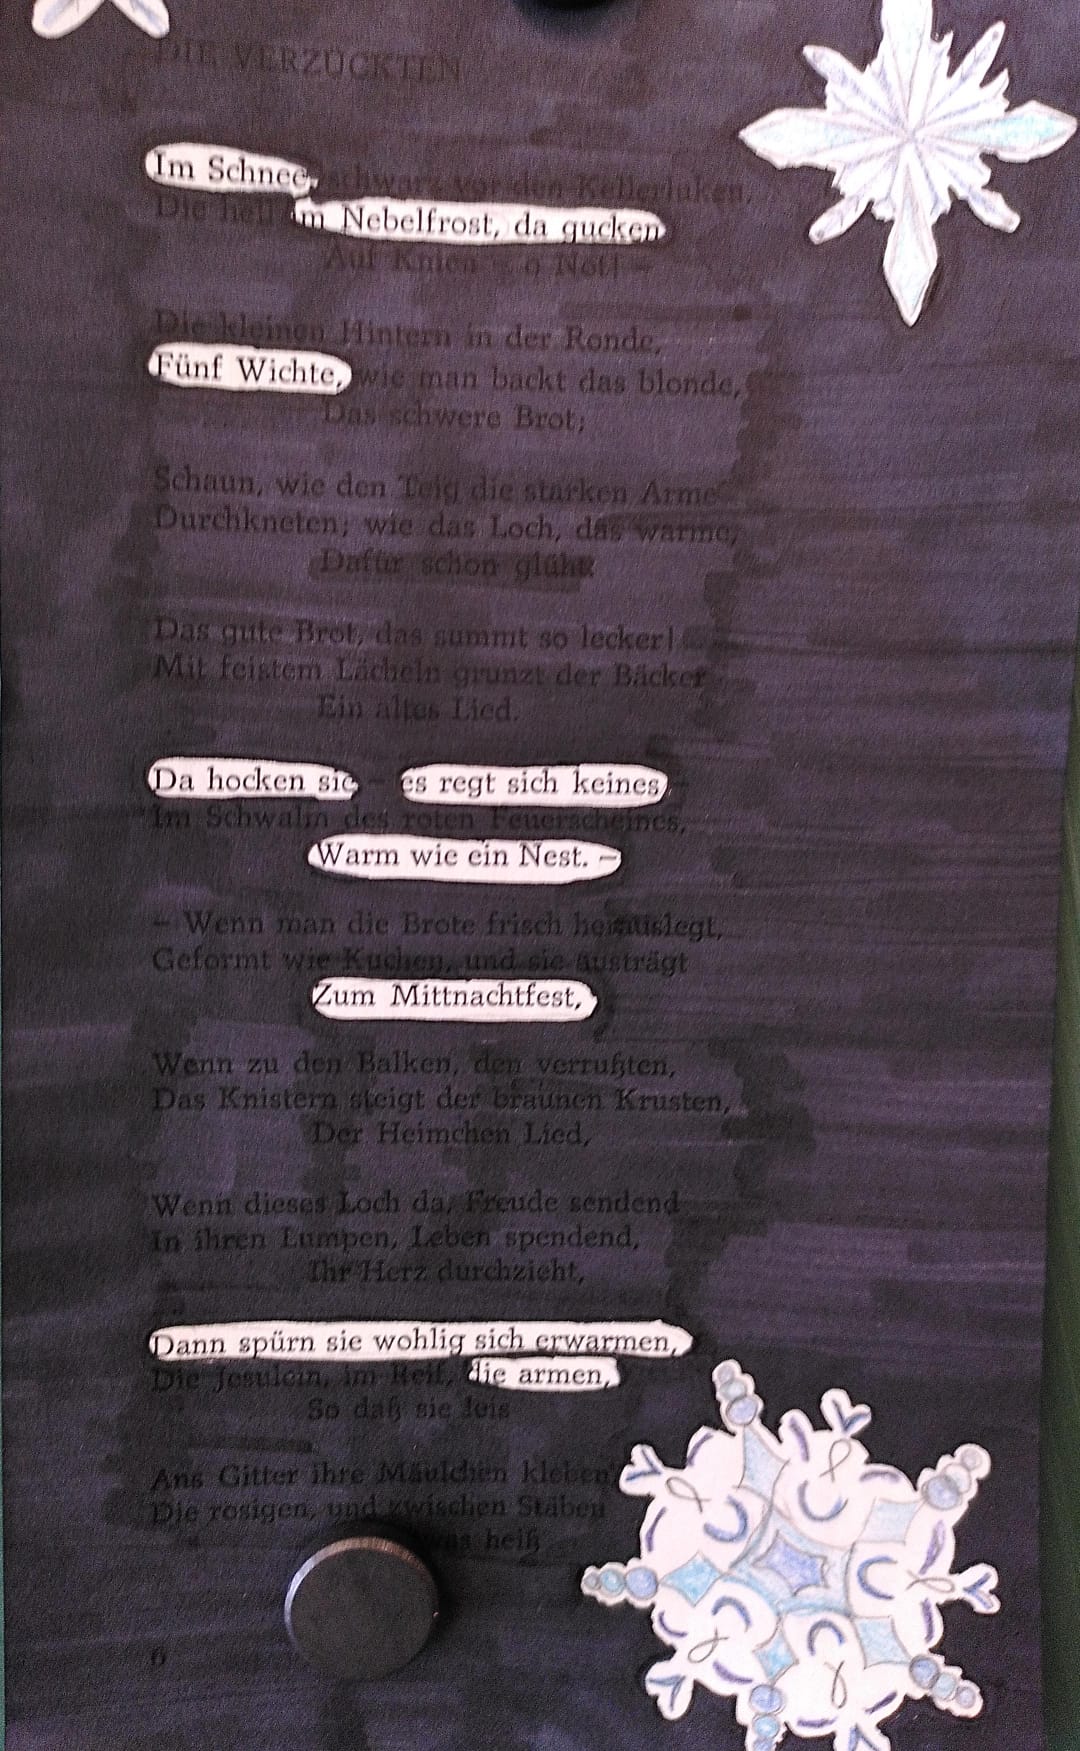 DIE VERZÜCKTEN
Im Schnee, schwarz vor den Kellerluken,
Die hell im Nebelfrost, da gucken
Auf Knien – o Not! –
Die kleinen Hintern in der Ronde,
Fünf Wichte, wie man backt das blonde,
Das schwere Brot;
Schaun, wie den Teig die starken Arme
Durchkneten; wie das Loch, das warme,
Dafür schon glüht.
Das gute Brot, das summt so lecker!
Mit feistem Lächeln grunzt der Bäcker
Ein altes Lied.
Da hocken sie – es regt sich keines,
Im Schwalm des roten Feuerscheines,
Warm wie ein Nest. –
– Wenn man die Brote frisch herauslegt,
Geformt wie Kuchen, und sie austrägt
Zum Mittnachtfest,
Wenn zu den Balken, den verrußten,
Das Knistern steigt der braunen Krusten,
Der Heimchen Lied,
Wenn dieses Loch da, Freude sendend
In ihren Lumpen, Leben spendend,
Ihr Herz durchzieht,
Dann spürn sie wohlig sich erwarmen,
Die Jesulein, im Reif, die armen,
So daß sie leis
Ans Gitter ihre Mäulchen kleben
Die rosigen, und zwischen Stäben
was heiß
6